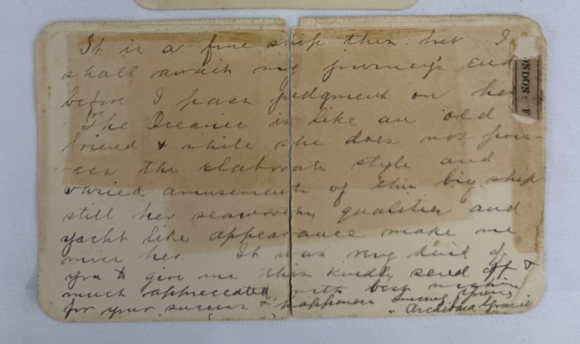 It is a fine ship this. but I
shall await my journey's end
before I pass judgment on her
The Oceanic is like an old
friend & while she does not poss-
ess the elaborate style and
varied amusements of this big ship
still her seaworthy qualities and
yacht like appearance make me
miss her. It was very kind of
you to give me this kindly send off &
much appreciated, with best wishes
for your success & happiness
Archibald Gracie
ONDON